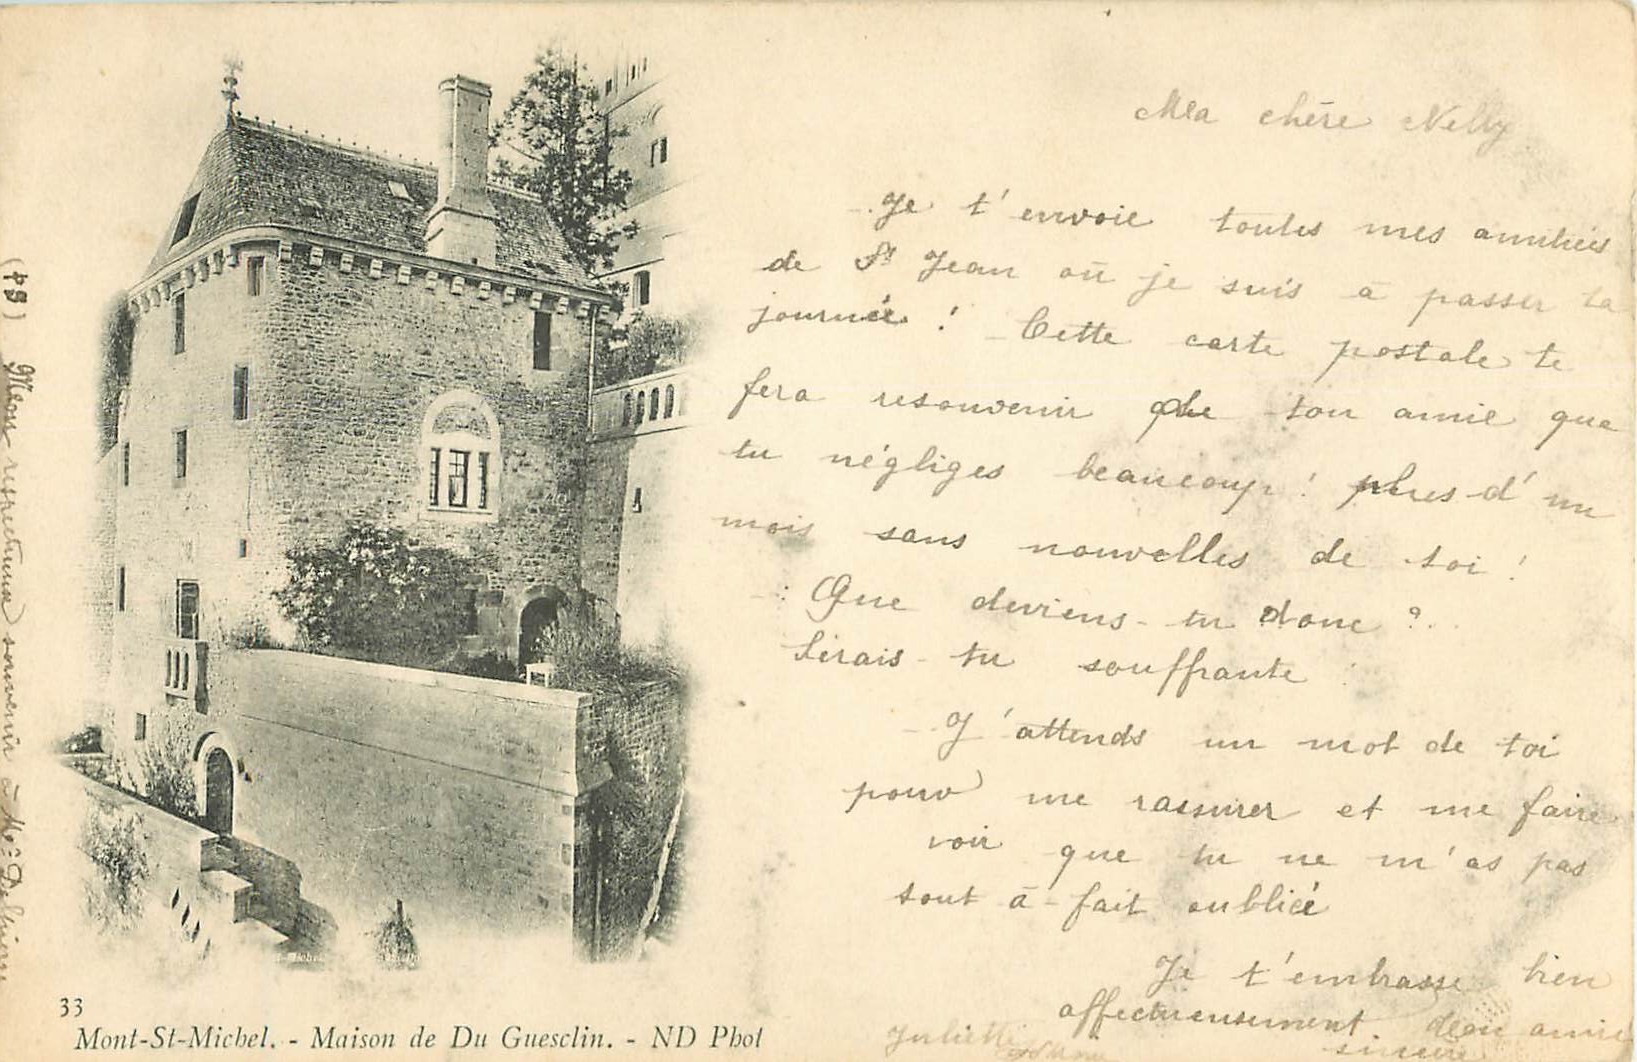 Ma chère Nelly
Je t'envoie toutes mes amitiés
de St Jean où je suis à passer la
journée ! Cette carte postale te
fera resouvenir de ton amie que
tu négliges beaucoup ! plus d'un
mois sans nouvelles de toi !
Que deviens-tu donc ?
Serais-tu souffrante
J'attends un mot de toi
pour me rassurer et me faire
voir que tu ne m'as pas
tout à-fait oubliée
Je t'embrasse bien
affectueusement.
amie
sincère
Juliette
Mon respectueux souvenir à Me
33
Mont-St-Michel. - Maison de Du Guesclin. - ND Phot